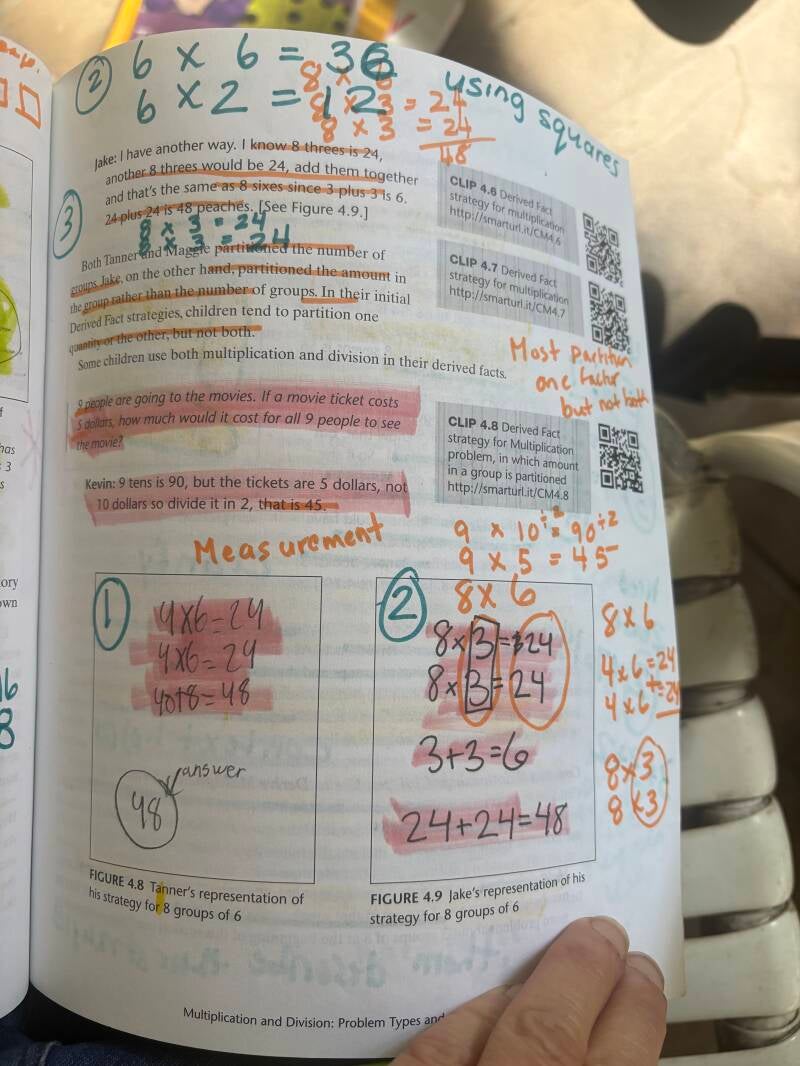 2
6 x 6 = 36
6 x 2 = 12
8 x 6
8 x 3 = 24
8 x 3 = 24
48
using squares
Jake: I have another way. I know 8 threes is 24,
another 8 threes would be 24, add them together
and that's the same as 8 sixes since 3 plus 3 is 6.
24 plus 24 is 48 peaches. [See Figure 4.9.]
3
8 x 3 = 24
8 x 3 = 24
Both Tanner and Maggie partitioned the number of
groups. Jake, on the other hand, partitioned the amount in
the group rather than the number of groups. In their initial
Derived Fact strategies, children tend to partition one
quantity or the other, but not both.
Some children use both multiplication and division in their derived facts.
CLIP 4.6 Derived Fact
strategy for multiplication
http://smarturl.it/CM4.6
CLIP 4.7 Derived Fact
strategy for multiplication
http://smarturl.it/CM4.7
Most partition
one factor
but not both
9 people are going to the movies. If a movie ticket costs
5 dollars, how much would it cost for all 9 people to see
the movie?
Kevin: 9 tens is 90, but the tickets are 5 dollars, not
10 dollars so divide it in 2, that is 45.
CLIP 4.8 Derived Fact
strategy for Multiplication
problem, in which amount
in a group is partitioned
http://smarturl.it/CM4.8
Measurement
9 x 10÷2 = 90÷2
9 x 5 = 45
8 x 6
1
4x6=24
4x6=24
40+8=48
answer
48
2
8x3=24
8x3=24
3+3=6
24+24=48
8 x 6
4 x 6 = 24
4 x 6 = 24
8 x 3
8 x 3
FIGURE 4.8 Tanner's representation of
his strategy for 8 groups of 6
FIGURE 4.9 Jake's representation of his
strategy for 8 groups of 6
Multiplication and Division: Problem Types and